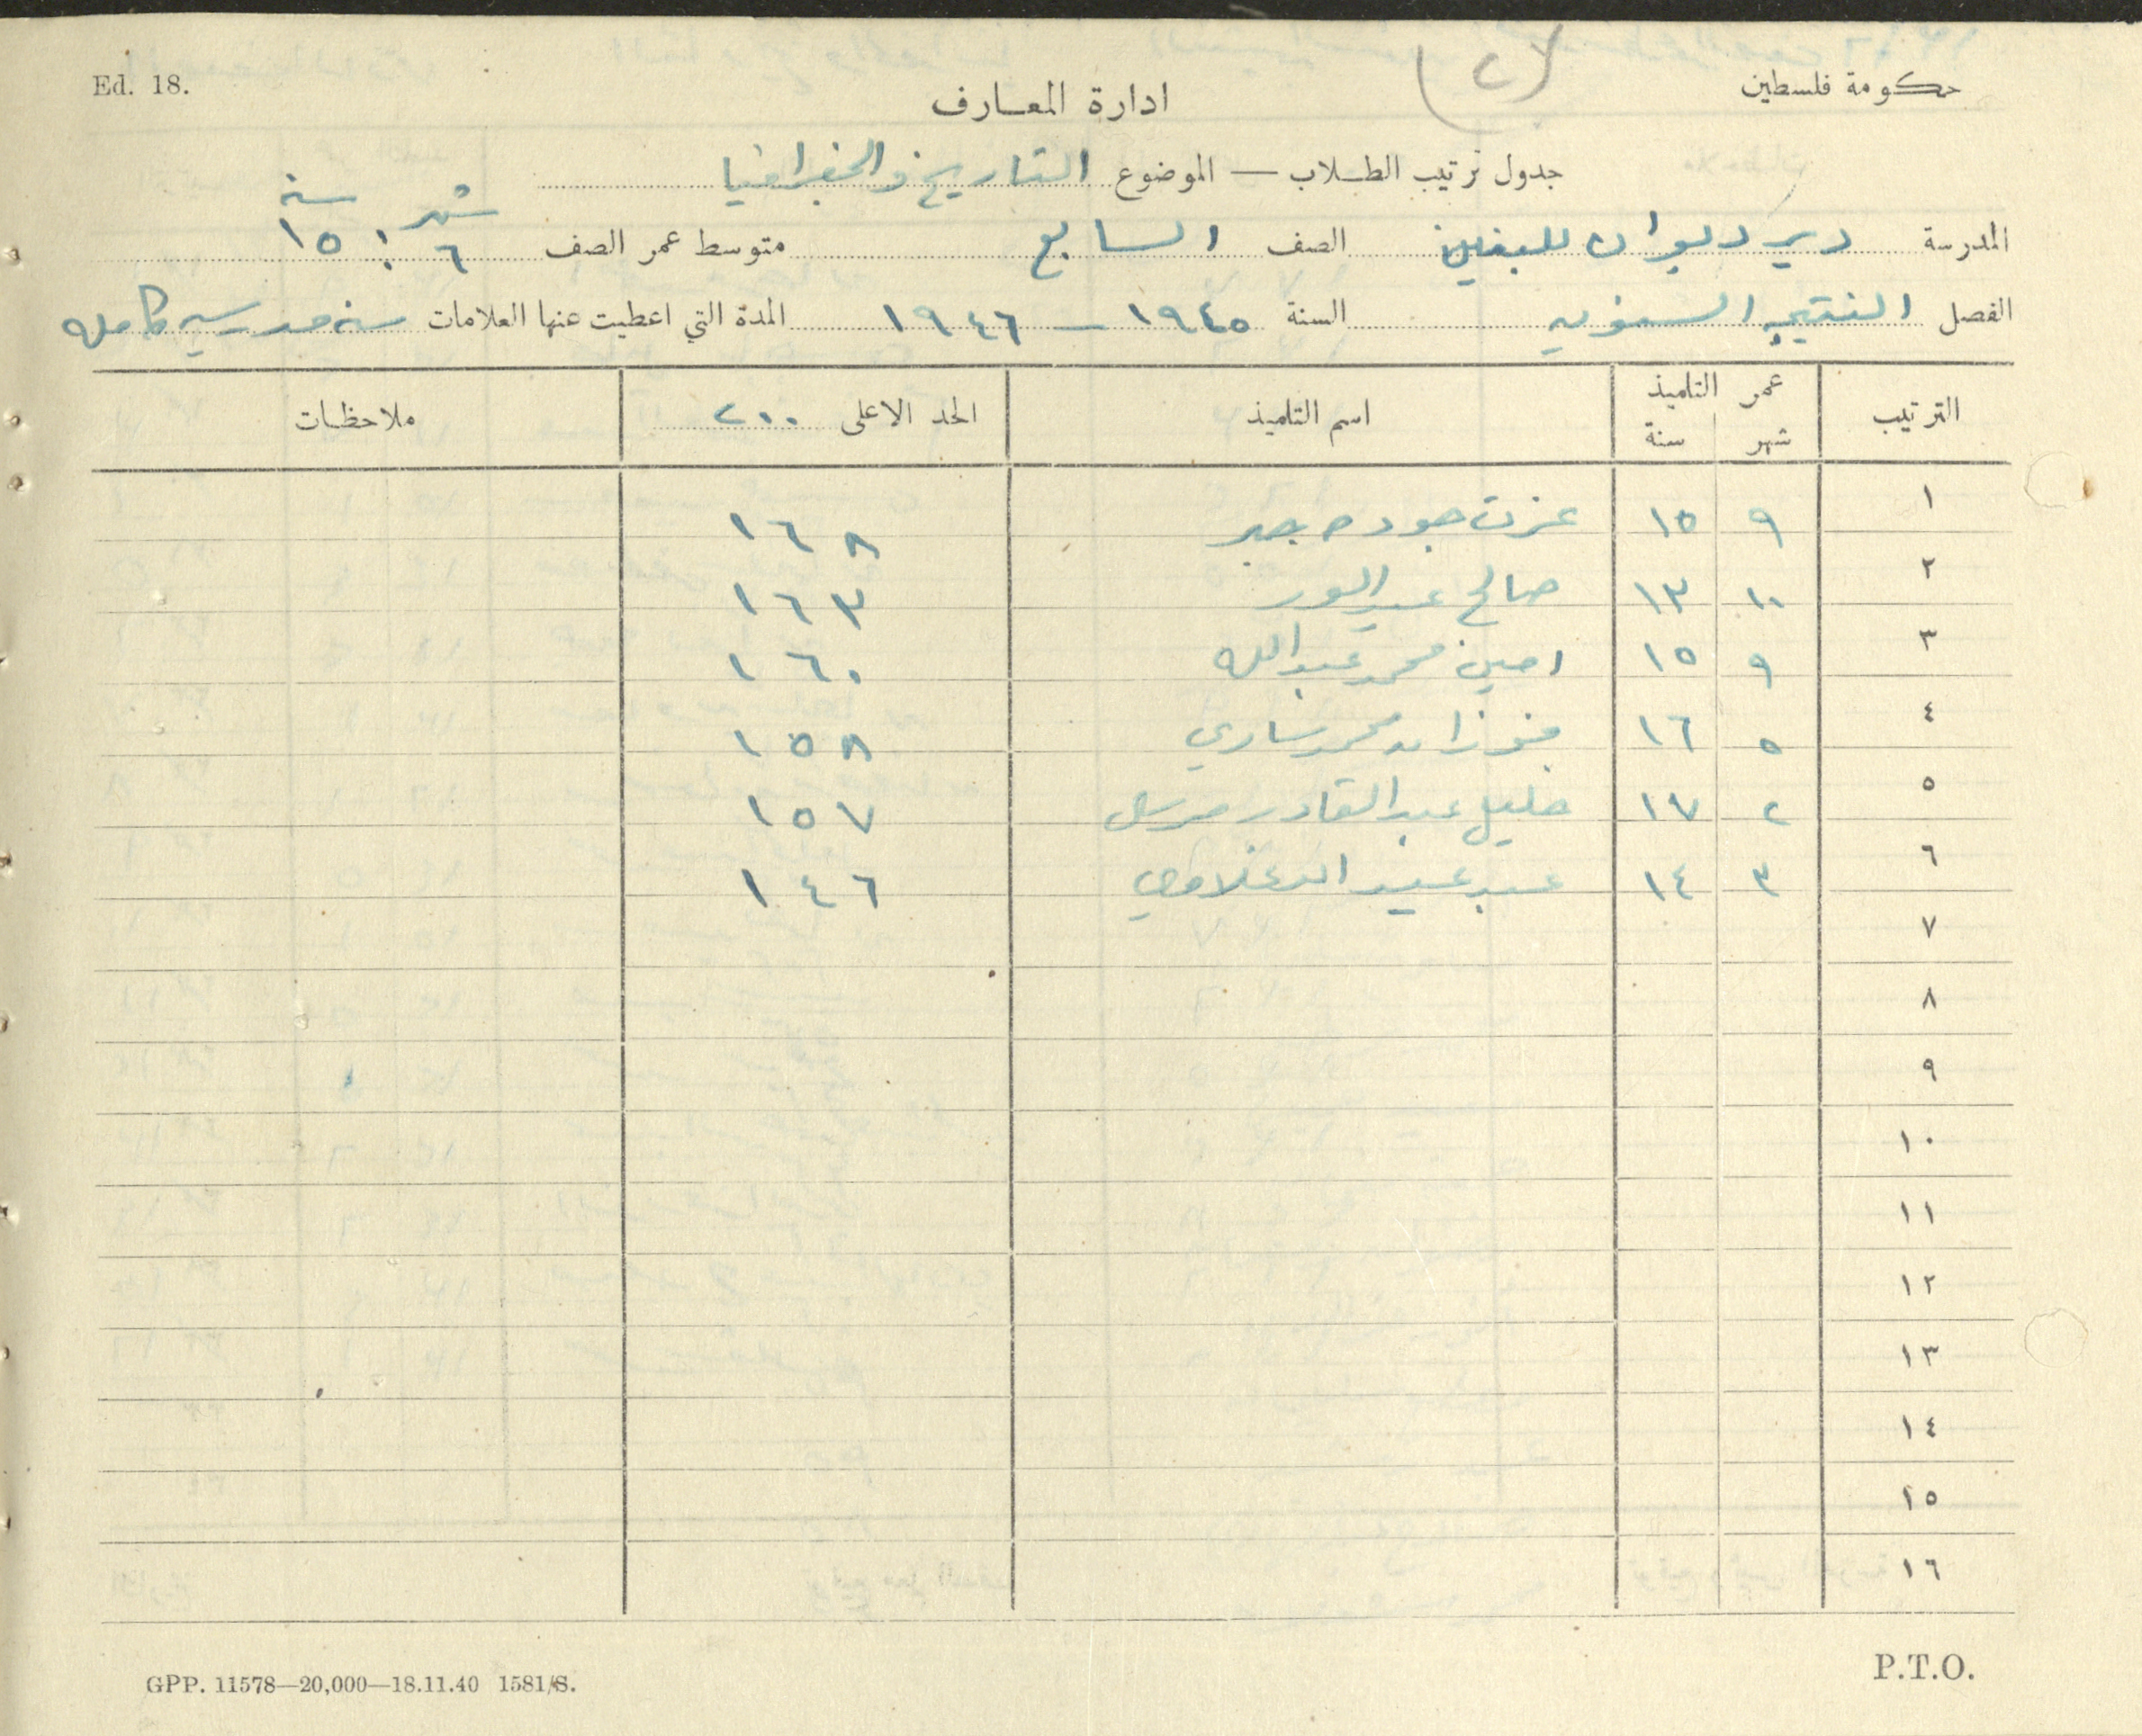 Ed. 18.
حكومة فلسطين
(٢)
ادارة المعارف
جدول ترتيب الطلاب — الموضوع التاريخ والجغرافيا
المدرسة دير ديوان للبنين الصف السابع متوسط عمر الصف شهر ٦ سنة ١٥
الفصل النتيجه السنويه السنة ١٩٤٥ – ١٩٤٦ المدة التي اعطيت عنها العلامات سنه مدرسيه كامله
الترتيب عمر التلميذ شهر سنة اسم التلميذ الحد الاعلى ٢٠٠ ملاحظات
١ ٩ ١٥ عزت جوده جبر ١٦٨
٢ ١٠ ١٣ صالح عبد ١٦٣
٣ ٩ ١٥ امين محمد عبدالله ١٦٠
٤ ٥ ١٦ محمد ساري ١٥٨
٥ ٢ ١٧ خليل عبد القادر ١٥٧
٦ ٣ ١٤ عبد ١٤٦
٧
٨
٩
١٠
١١
١٢
١٣
١٤
١٥
١٦
GPP. 11578—20,000—18.11.40 1581/S.
P.T.O.